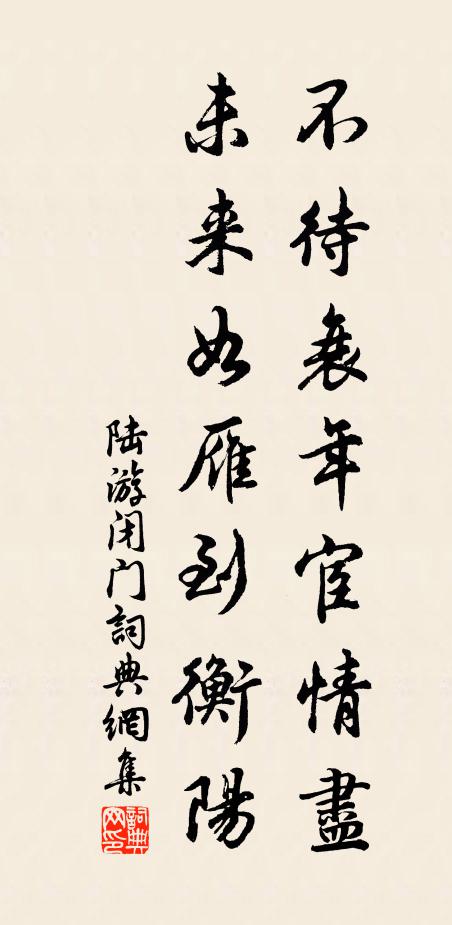 不待衰年宦情盡
未来如雁到衡陽
陆游闭门詞典網集
詞典网印